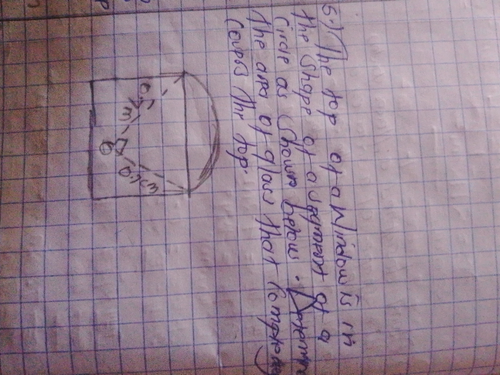 5.) The top of a Window is in
the shape of a segment of a
Circle as Shown below. Determine
the area of glass that completely
Covers the top.
0.5m
0.5m